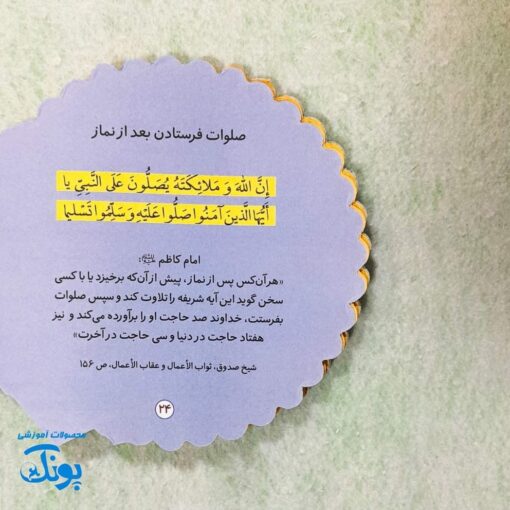 صلوات فرستادن بعد از نماز
إِنَّ اللهَ وَ مَلائِكَتَهُ يُصَلُّونَ عَلَى النَّبِيِّ يا
أَيُّهَا الَّذينَ آمَنُوا صَلُّوا عَلَيْهِ وَ سَلِّمُوا تَسْليما
امام کاظم علیه السلام:
«هر آن‌کس پس از نماز، پیش از آن‌که برخیزد یا با کسی
سخن گوید این آیه شریفه را تلاوت کند و سپس صلوات
بفرستت، خداوند صد حاجت او را برآورده می‌کند و نیز
هفتاد حاجت در دنیا و سی حاجت در آخرت»
شیخ صدوق، ثواب الأعمال و عقاب الأعمال، ص ۱۵۶
۲۴
محصولات آموزشی
پونک